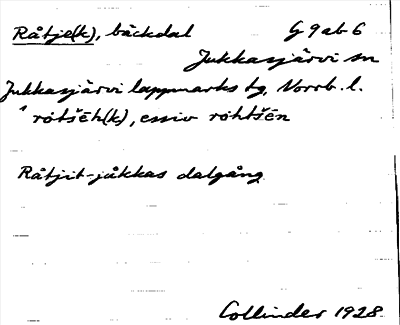 Råtje(k), bäckdal G 9ab 6
Jukkasjärvi sn
Jukkasjärvi lappmarks tg, Norrb. l.
rōtšēh(k), essiv rōhtšēn
Råtjit-jåkkas dalgång
Collinder 1928